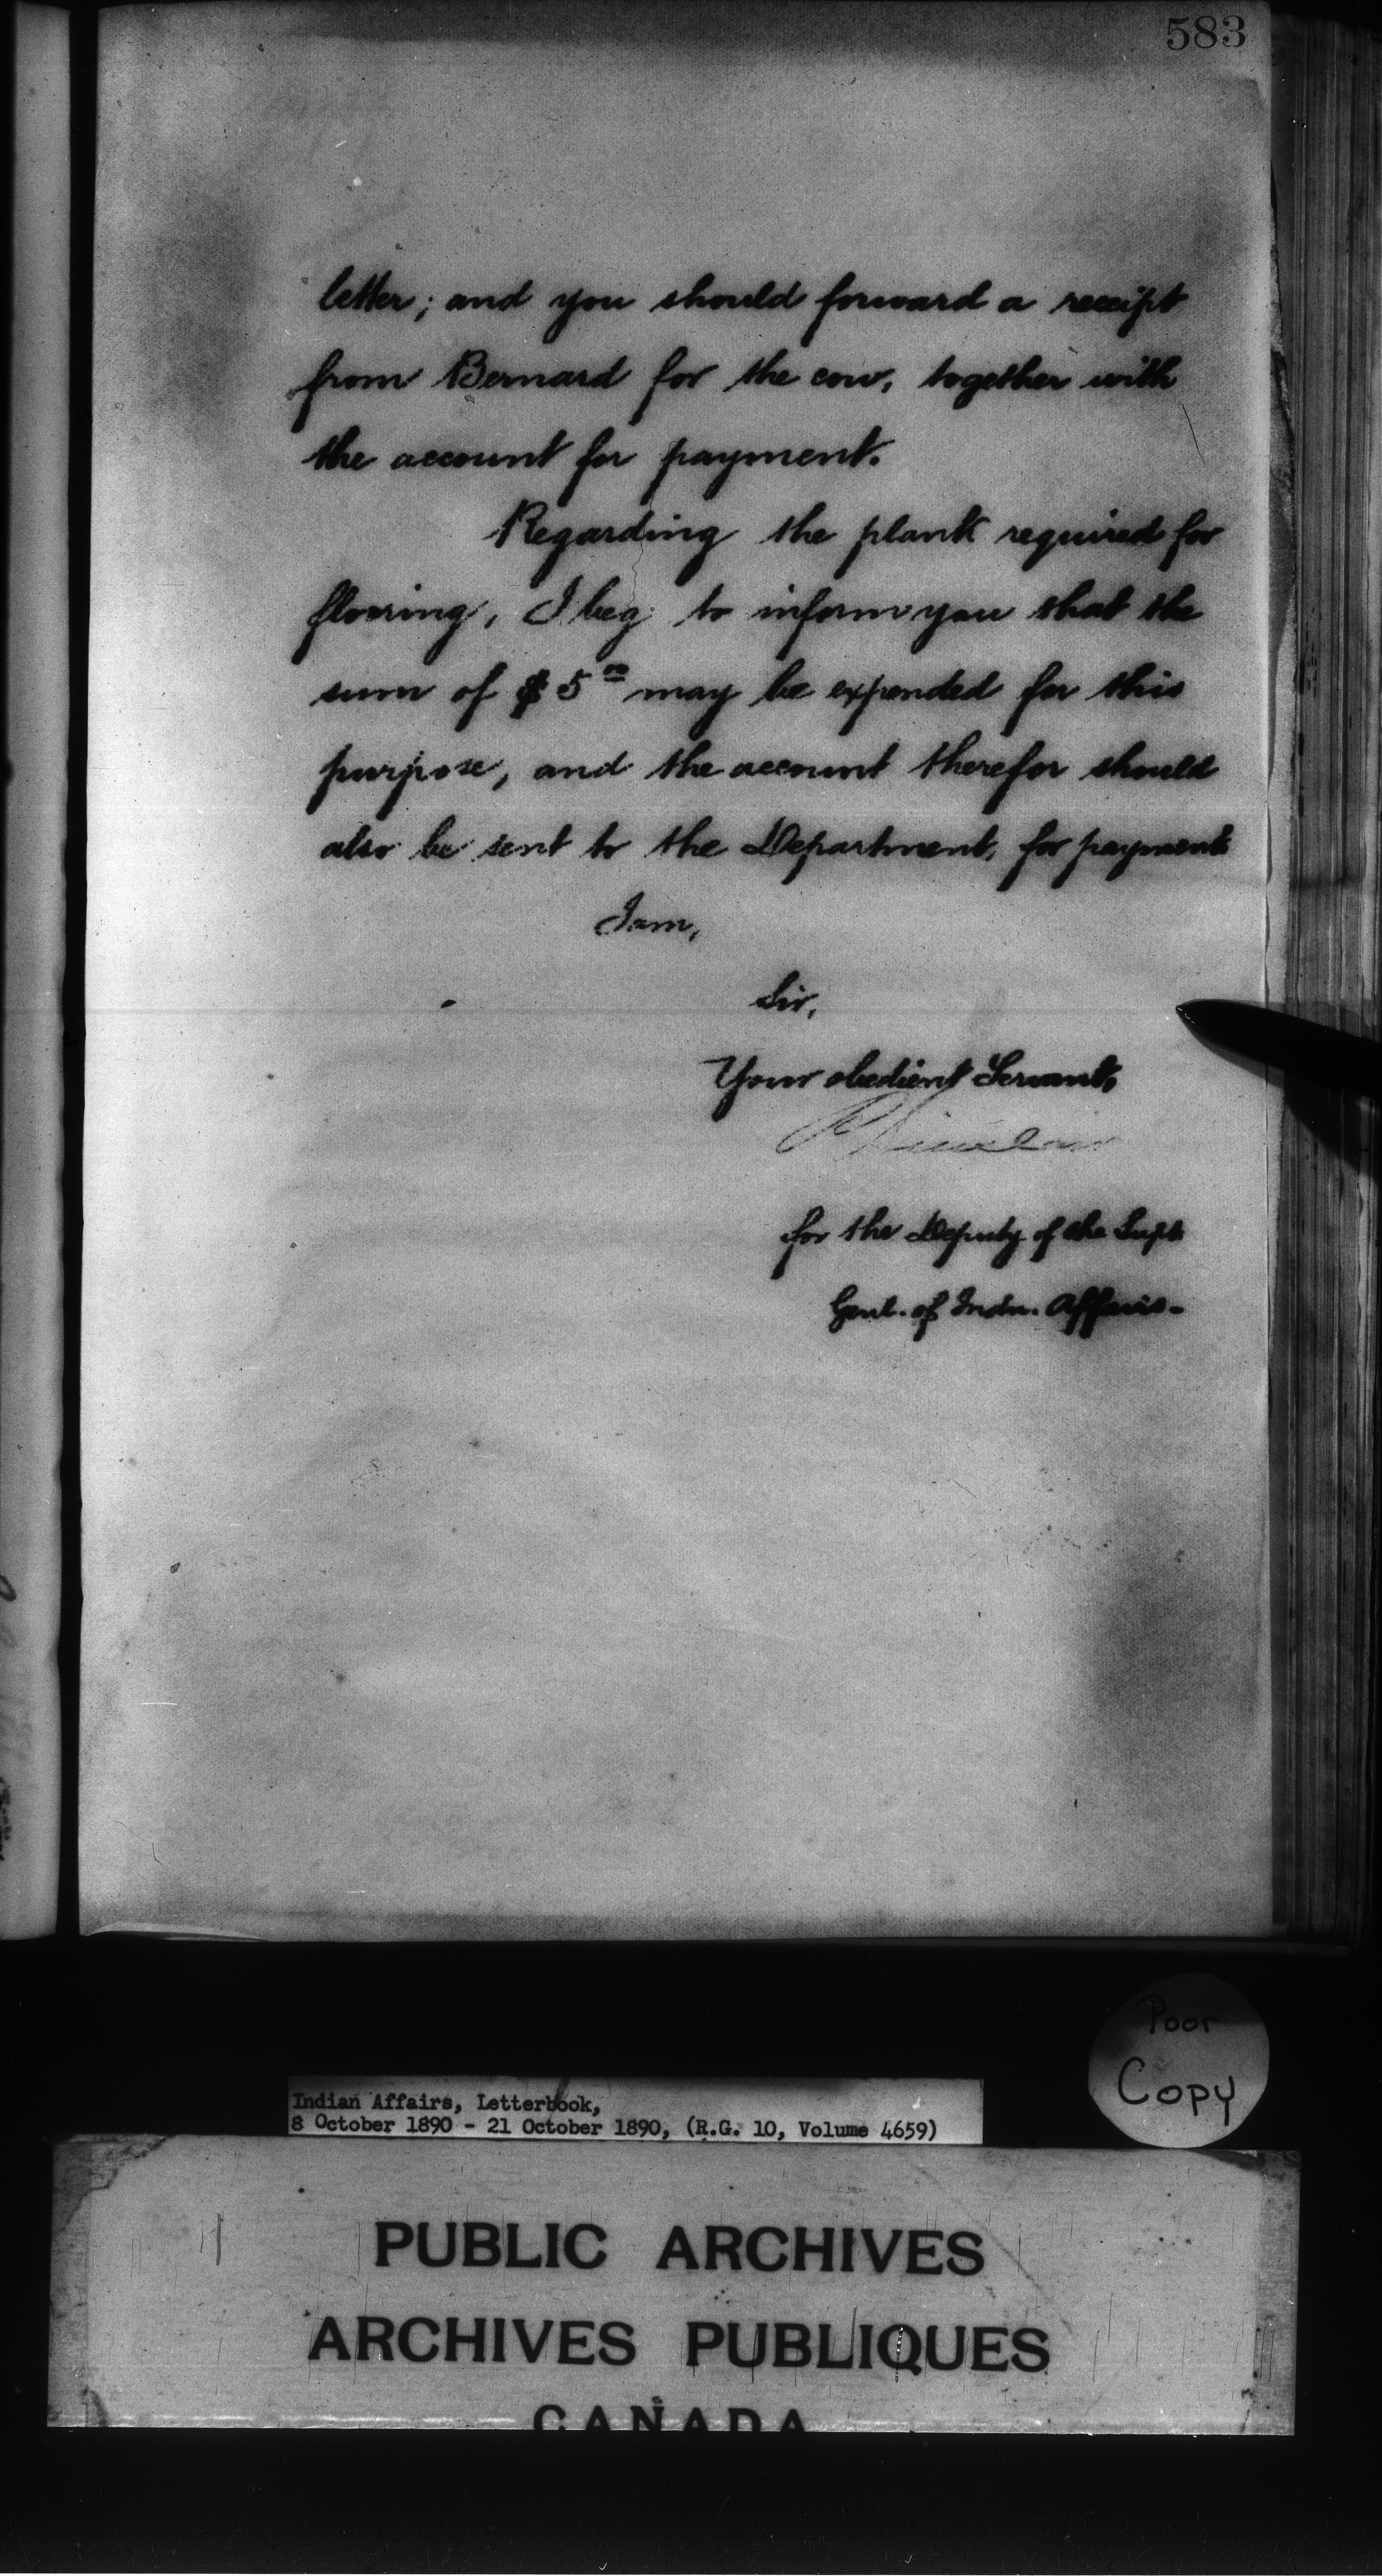 583
letter; and you should forward a receipt
from Bernard for the cow, together with
the account for payment.
Regarding the plank required for
flooring, I beg to inform you that the
sum of $5 00 may be expended for this
purpose, and the account therefor should
also be sent to the Department, for payment
I am,
Sir,
Your obedient Servant,
for the Deputy of the Supt
Genl. of Indn. Affairs-
Poor
Copy
Indian Affairs, Letterbook,
8 October 1890 - 21 October 1890, (R.G. 10, Volume 4659)
PUBLIC ARCHIVES
ARCHIVES PUBLIQUES
CANADA